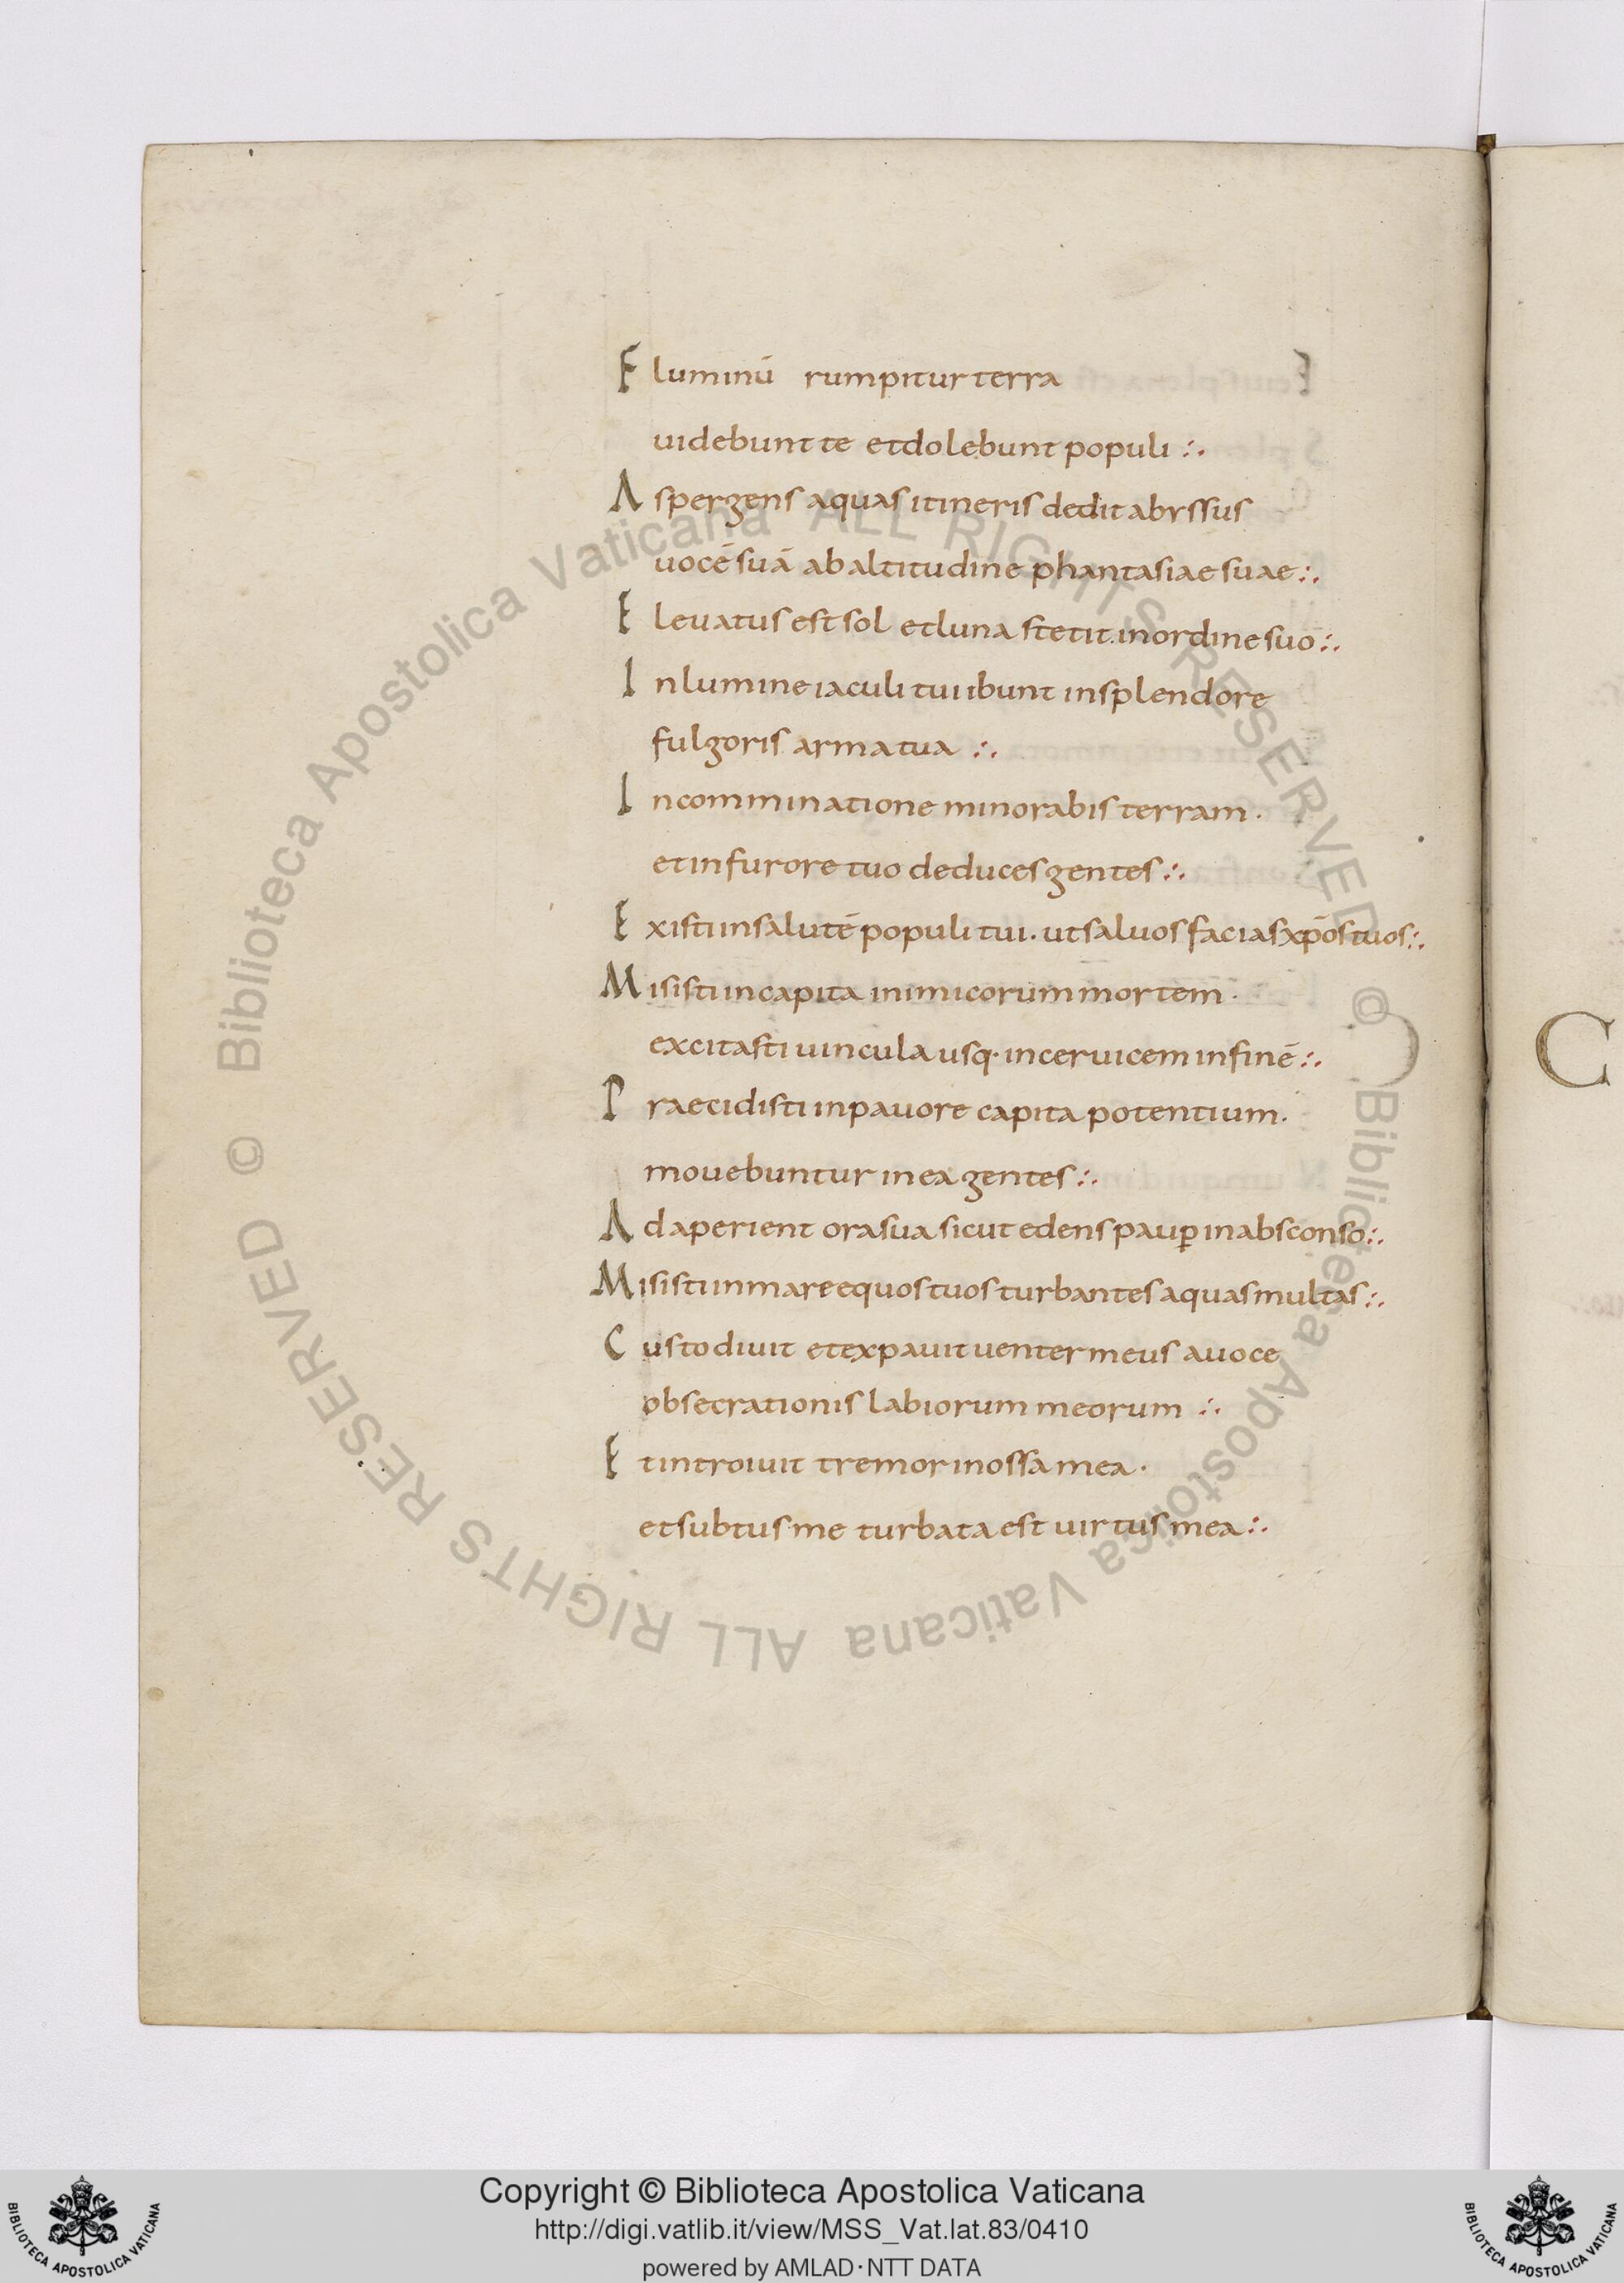 Fluminū rumpitur terra
uidebunt te et dolebunt populi :.
Aspergens aquas itineris dedit abyssus
uocē suā ab altitudine phantasiae suae :.
Eleuatus est sol et luna stetit in ordine suo :.
In lumine iaculi tui ibunt in splendore
fulgoris arma tua :.
In comminatione minorabis terram .
et in furore tuo deduces gentes :.
Existi in salutē populi tui . ut saluos facias xp̄os tuos :.
Misisti in capita inimicorum mortem .
excitasti uincula usq· in ceruicem in finē :.
Praecidisti in pauore capita potentium .
mouebuntur in ea gentes :.
Adaperient ora sua sicut edens paup̲ in absconso :.
Misisti in mare equos tuos turbantes aquas multas :.
Custodiuit et expauit uenter meus a uoce
obsecrationis labiorum meorum :.
Et introiuit tremor in ossa mea .
et subtus me turbata est uirtus mea :.
C
© Biblioteca Apostolica Vaticana ALL RIGHTS RESERVED
© Biblioteca Apostolica Vaticana ALL RIGHTS RESERVED
Copyright © Biblioteca Apostolica Vaticana
http://digi.vatlib.it/view/MSS_Vat.lat.83/0410
powered by AMLAD·NTT DATA
BIBLIOTECA APOSTOLICA VATICANA
BIBLIOTECA APOSTOLICA VATICANA